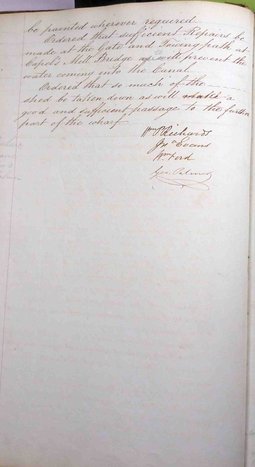 be painted wherever required
Ordered that sufficient Repairs be
made at the Gate and Towing path at
Capel's Mill Bridge as will prevent the
water coming into the Canal.
Ordered that so much of the
shed be taken down as will make a
good and sufficient passage to the further
part of the wharf
Wm P Richards
Jn Evans
Wm Ford
Geo